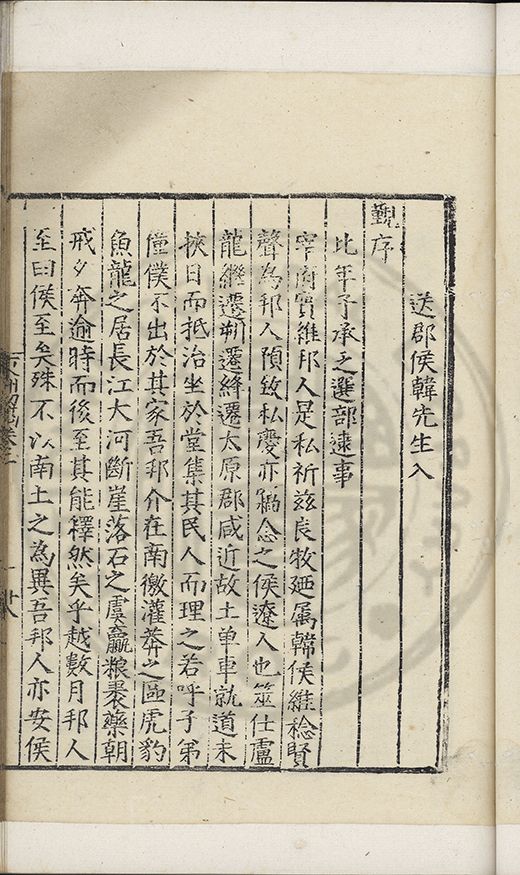 送郡侯韓先生入
覲序
比年予承乏選部逮事
宰府實維邦人是私祈茲良牧廼属韓侯維稔賢
聲為邦人預致私慶亦竊念之侯遼人也筮仕盧
龍繼遷朔遷絳遷太原郡咸近故土单車就道未
挾日而抵治坐於堂集其民人而理之若呼子弟
僮僕不出於其家吾邦介在南徼灌莽之區虎豹
魚龍之居長江大河斷崖落石之虞贏粮裹藥朝
戒夕奔逾時而後至其能釋然矣乎越數月邦人
至曰侯至矣殊不以南土之為異吾邦人亦安侯